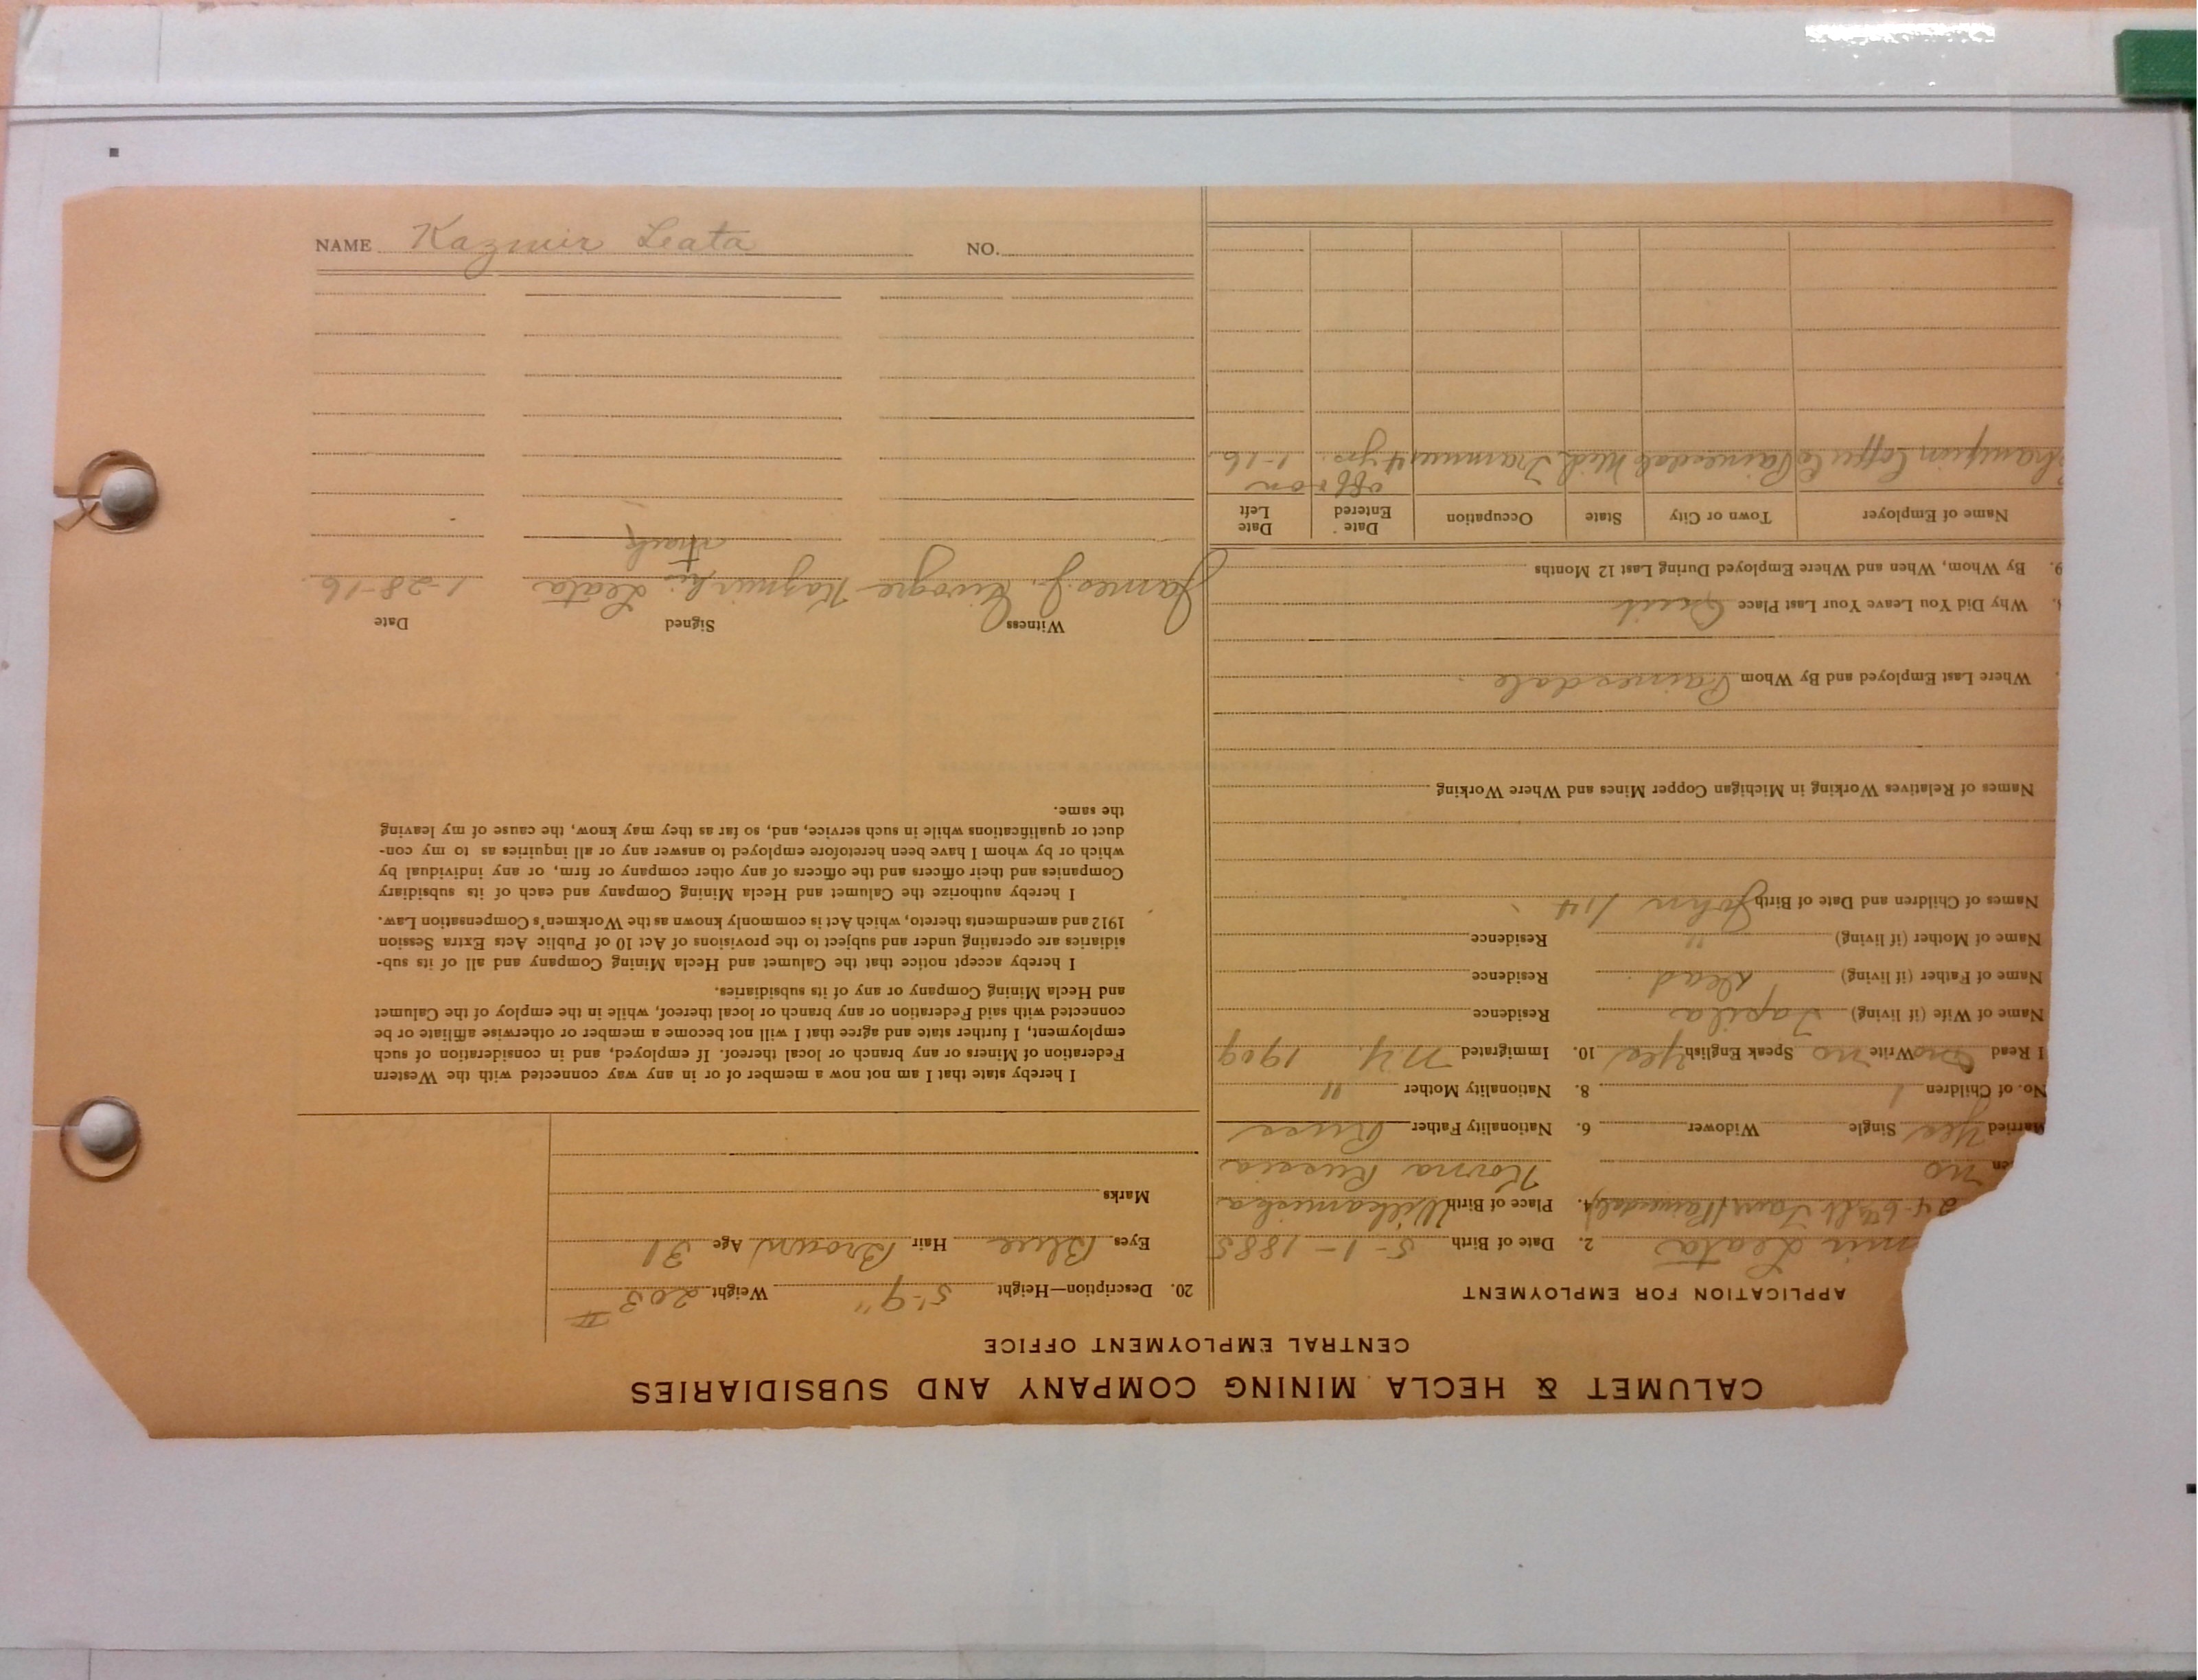 CALUMET & HECLA MINING COMPANY AND SUBSIDIARIES
CENTRAL EMPLOYMENT OFFICE
APPLICATION FOR EMPLOYMENT
mir Leata 2. Date of Birth 5-1-1885
4. Place of Birth
no Kovna Russia
Married Yes Single Widower 6. Nationality Father Russ
No. of Children 1 8. Nationality Mother "
I Read no Write no Speak English Yes 10. Immigrated N.Y. 1909
Name of Wife (if living) Residence
Name of Father (if living) Dead Residence
Name of Mother (if living) " Residence
Names of Children and Date of Birth John 1/14
Names of Relatives Working in Michigan Copper Mines and Where Working
Where Last Employed and By Whom Painesdale
Why Did You Leave Your Last Place Quit
9. By Whom, When and Where Employed During Last 12 Months
Name of Employer Town or City State Occupation Date Entered Date Left
off & on
Champion Copper Co Painesdale Mich. Trammer 4 yrs. 1-16
20. Description—Height 5'-9" Weight 203 #
Eyes Blue Hair Brown Age 31
Marks
I hereby state that I am not now a member of or in any way connected with the Western
Federation of Miners or any branch or local thereof. If employed, and in consideration of such
employment, I further state and agree that I will not become a member or otherwise affiliate or be
connected with said Federation or any branch or local thereof, while in the employ of the Calumet
and Hecla Mining Company or any of its subsidiaries.
I hereby accept notice that the Calumet and Hecla Mining Company and all of its sub-
sidiaries are operating under and subject to the provisions of Act 10 of Public Acts Extra Session
1912 and amendments thereto, which Act is commonly known as the Workmen's Compensation Law.
I hereby authorize the Calumet and Hecla Mining Company and each of its subsidiary
Companies and their officers and the officers of any other company or firm, or any individual by
which or by whom I have been heretofore employed to answer any or all inquiries as to my con-
duct or qualifications while in such service, and, so far as they may know, the cause of my leaving
the same.
Witness Signed Date
James J. Kazmir his Leata 1-28-16.
mark
NAME Kazmir Leata NO.